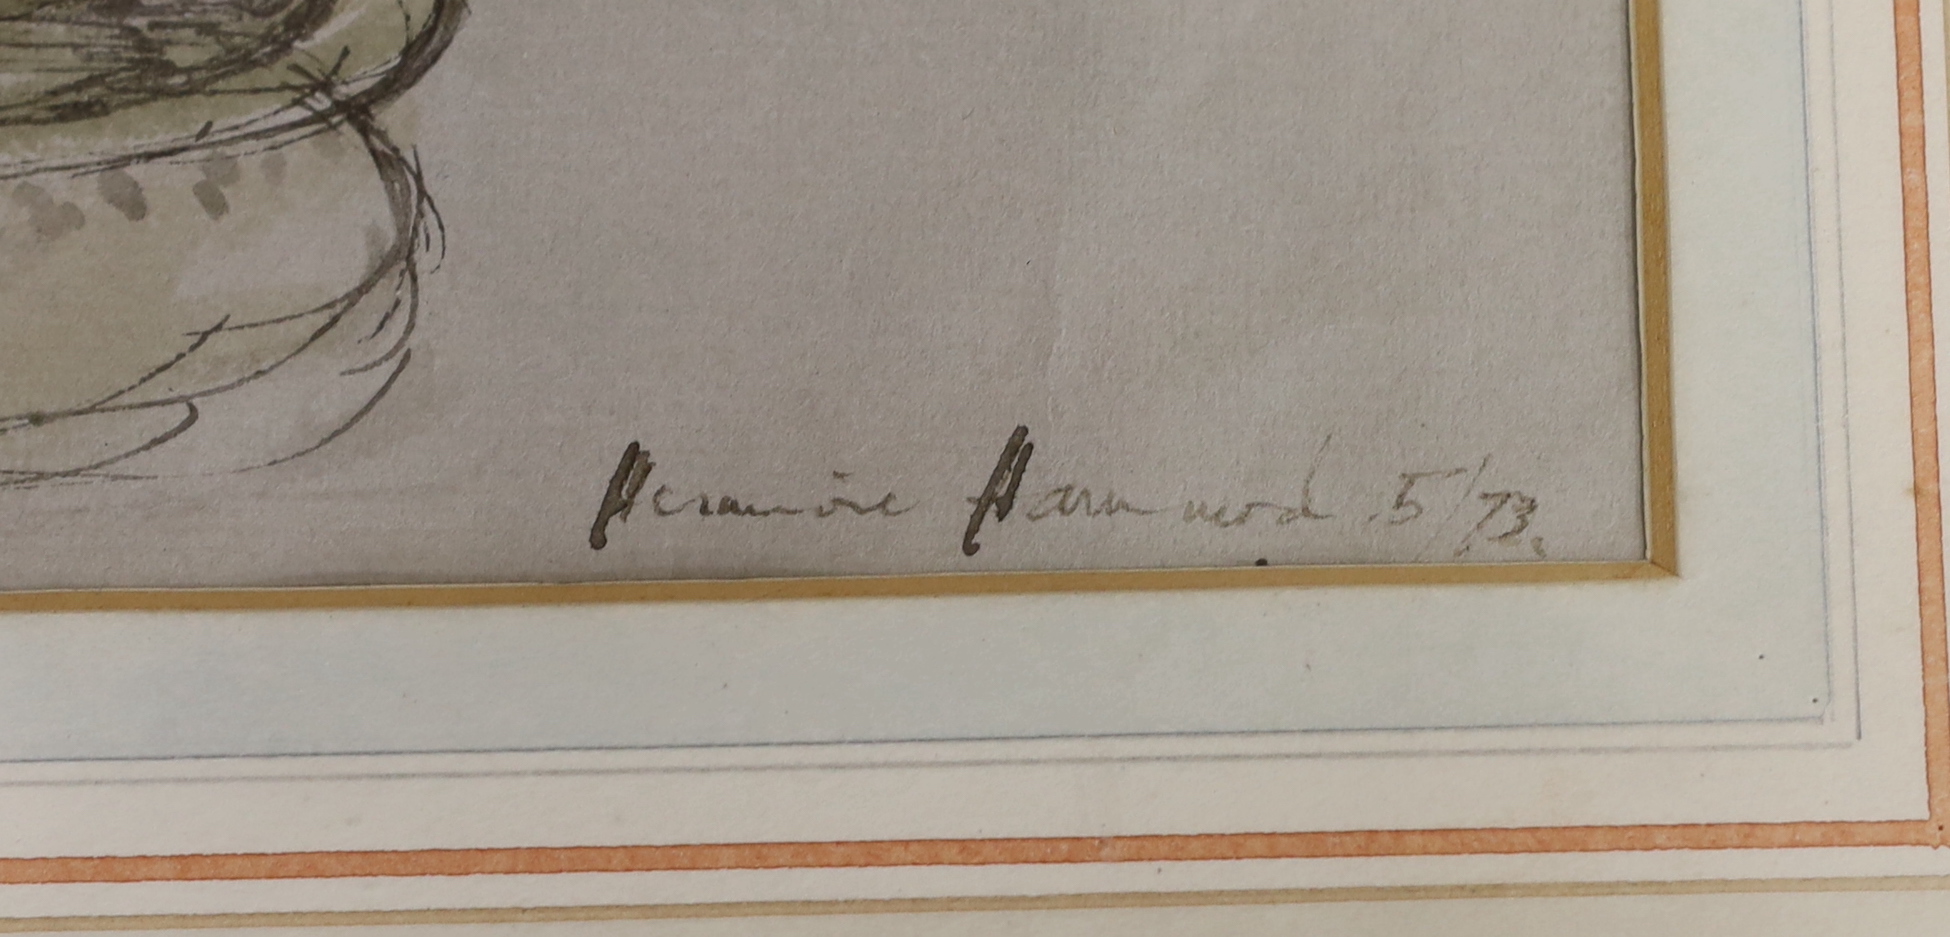 Hermione Hammond 5/73.